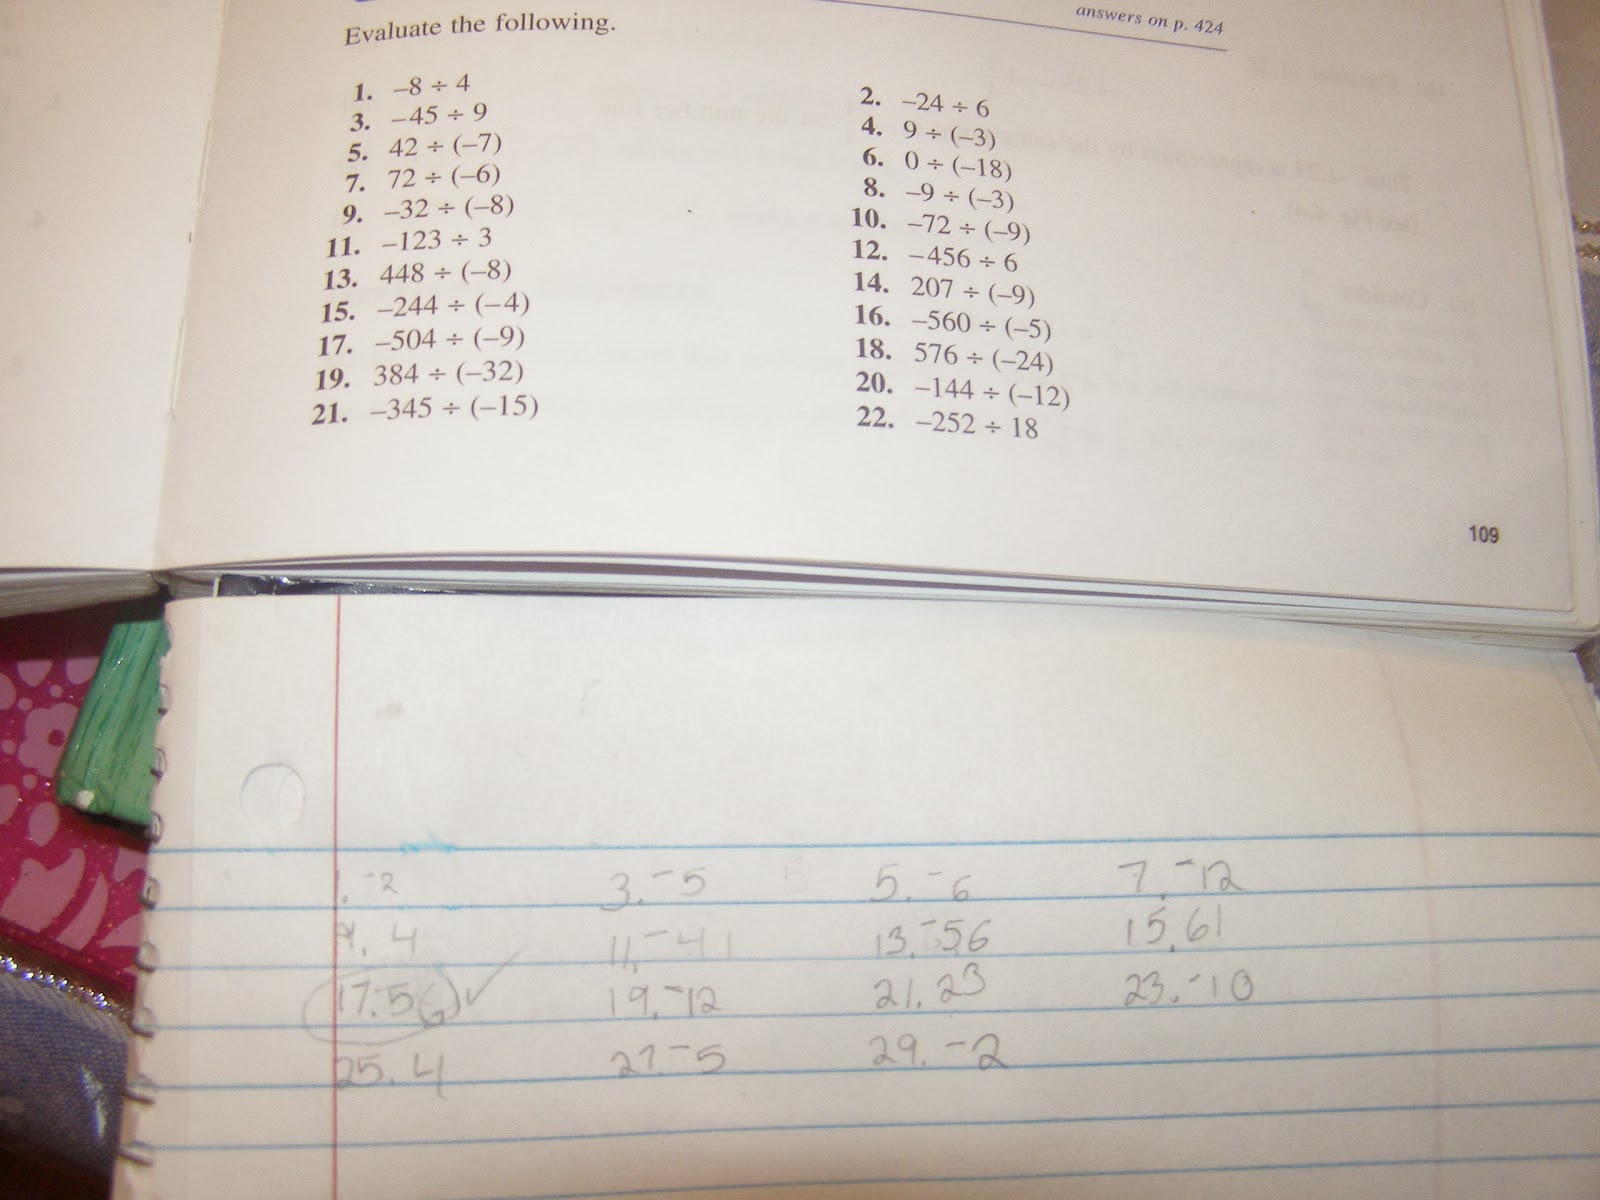 answers on p. 424
Evaluate the following.
1. –8 ÷ 4
2. –24 ÷ 6
3. –45 ÷ 9
4. 9 ÷ (–3)
5. 42 ÷ (–7)
6. 0 ÷ (–18)
7. 72 ÷ (–6)
8. –9 ÷ (–3)
9. –32 ÷ (–8)
10. –72 ÷ (–9)
11. –123 ÷ 3
12. –456 ÷ 6
13. 448 ÷ (–8)
14. 207 ÷ (–9)
15. –244 ÷ (–4)
16. –560 ÷ (–5)
17. –504 ÷ (–9)
18. 576 ÷ (–24)
19. 384 ÷ (–32)
20. –144 ÷ (–12)
21. –345 ÷ (–15)
22. –252 ÷ 18
109
1. -2 3. -5 5. -6 7. -12
9. 4 11. -41 13. -56 15. 61
17. 56 ✓ 19. -12 21. 23 23. -10
25. 4 27. -5 29. -2